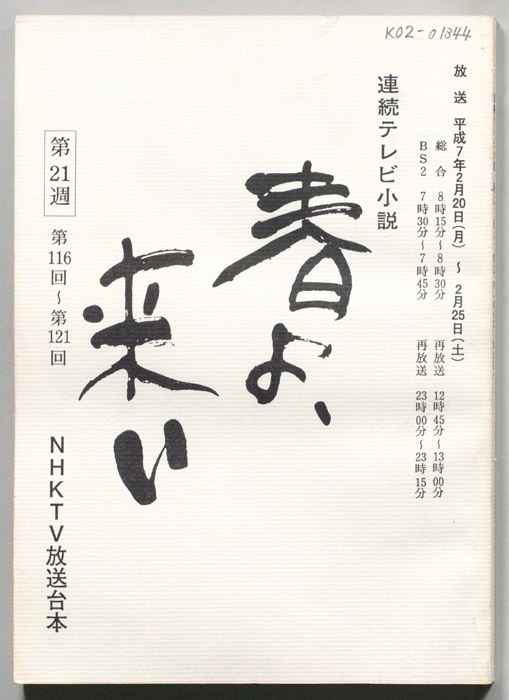 K02-01344
放送 平成7年2月20日(月) ～ 2月25日(土)
総合 8時15分～8時30分 再放送 12時45分～13時00分
BS2 7時30分～7時45分 再放送 23時00分～23時15分
連続テレビ小説
春よ、
来い
第21週
第116回～第121回
NHKTV放送台本